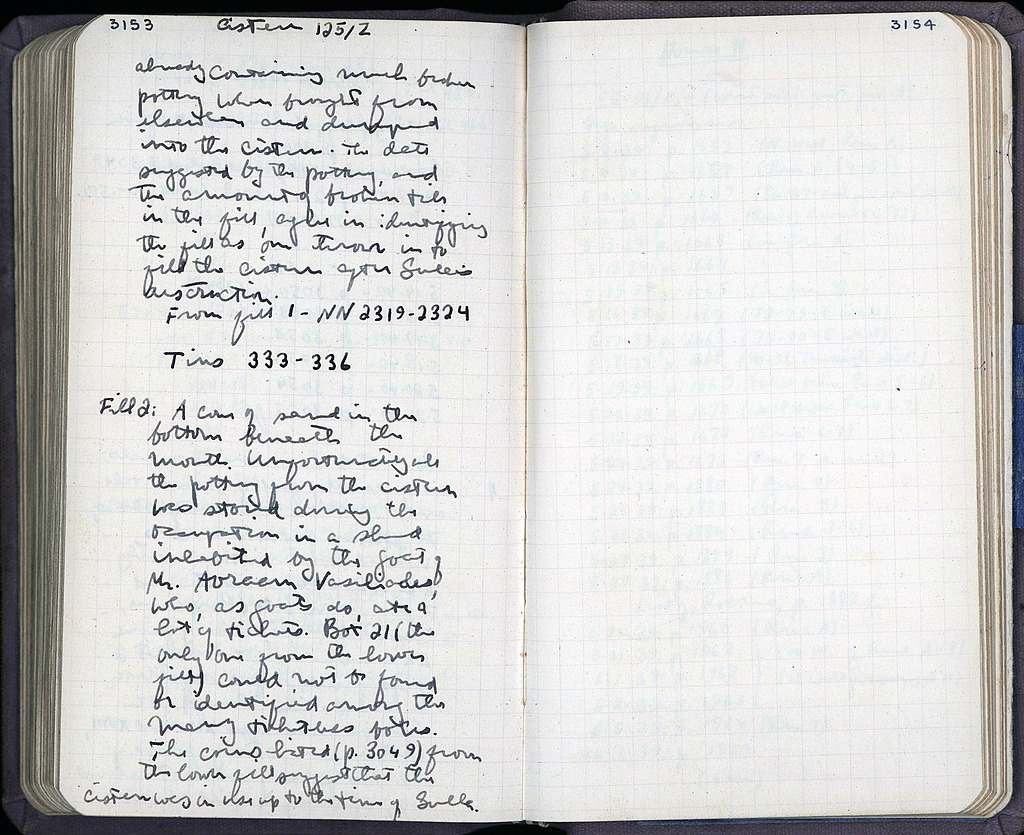 3153 Cistern 125/Z
already containing much broken
pottery when brought from
elsewhere and dumped
into the cistern. The date
suggested by the pottery, and
the amount of broken tiles
in the fill, agree in identifying
the fill as one thrown in to
fill the cistern after Sulla's
destruction.
From fill 1 - NN 2319-2324
Tins 333-336
Fill 2: A cone of sand in the
bottom beneath the
mouth. Unfortunately all
the pottery from the cistern
was stored during the
occupation in a shed
inhabited by the goat of
Mr. Abraam Vasiliades,
who, as goats do, ate a
lot of tickets. Box 21 (the
only one from the lower
fill) could not be found
or identified among the
many ticketless boxes.
The coins listed (p. 3049) from
the lower fill suggest that the
cistern was in use up to the time of Sulla.
3154